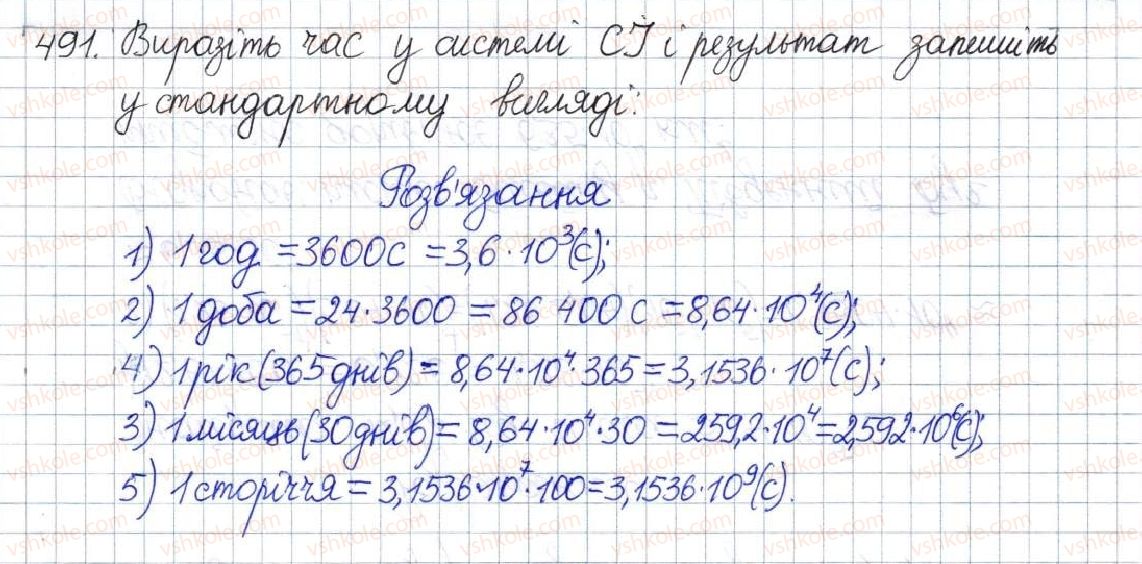 491. Виразіть час у системі СІ і результат запишіть
у стандартному вигляді:
Розв'язання
1) 1 год = 3600 с = 3,6 · 10³(с);
2) 1 доба = 24 · 3600 = 86 400 с = 8,64 · 10⁴(с);
4) 1 рік (365 днів) = 8,64 · 10⁴ · 365 = 3,1536 · 10⁷(с);
3) 1 місяць (30 днів) = 8,64 · 10⁴ · 30 = 259,2 · 10⁴ = 2,592 · 10⁶(с);
5) 1 сторіччя = 3,1536 · 10⁷ · 100 = 3,1536 · 10⁹(с).